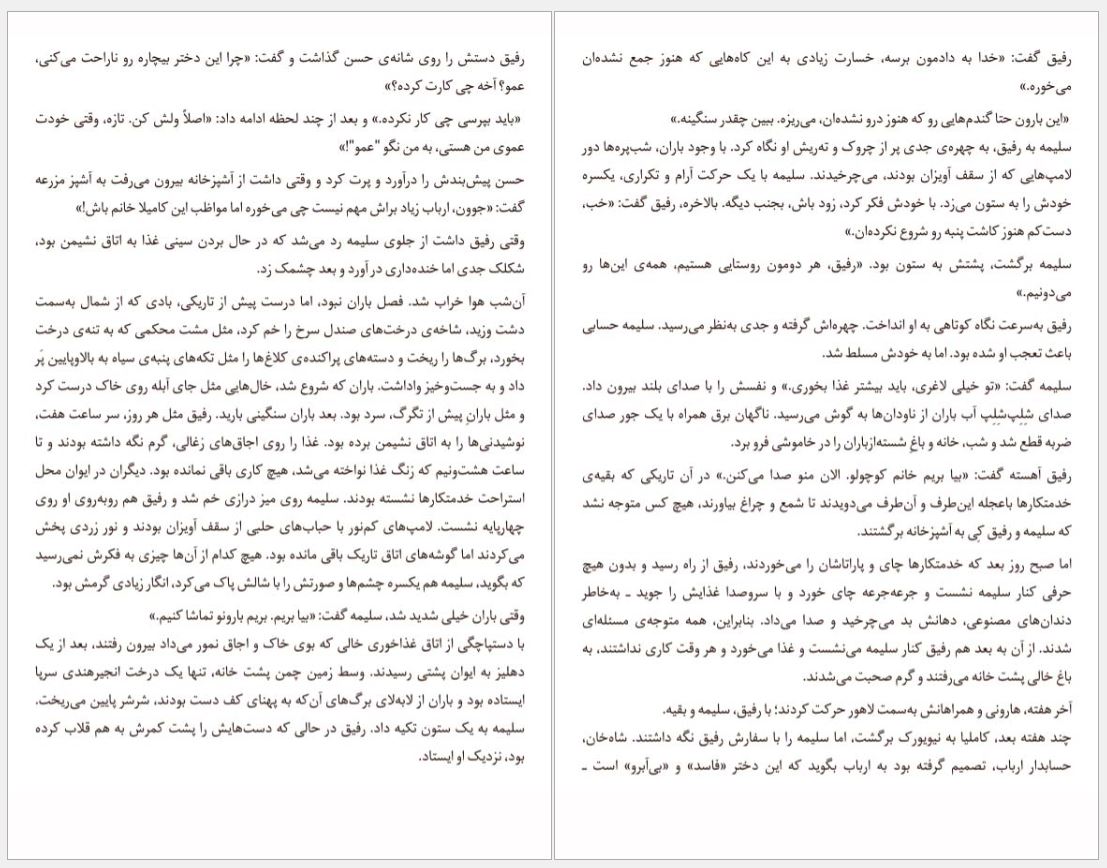 رفیق دستش را روی شانه‌ی حسن گذاشت و گفت: «چرا این دختر بیچاره رو ناراحت می‌کنی،
عمو؟ آخه چی کارت کرده؟»
«باید بپرسی چی کار نکرده.» و بعد از چند لحظه ادامه داد: «اصلاً ولش کن. تازه، وقتی خودت
عموی من هستی، به من نگو "عمو"!»
حسن پیش‌بندش را درآورد و پرت کرد و وقتی داشت از آشپزخانه بیرون می‌رفت به آشپز مزرعه
گفت: «جوون، ارباب زیاد براش مهم نیست چی می‌خوره اما مواظب این کامیلا خانم باش!»
وقتی رفیق داشت از جلوی سلیمه رد می‌شد که در حال بردن سینی غذا به اتاق نشیمن بود،
شکلک جدی اما خنده‌داری در آورد و بعد چشمک زد.
آن‌شب هوا خراب شد. فصل باران نبود، اما درست پیش از تاریکی، بادی که از شمال به‌سمت
دشت وزید، شاخه‌ی درخت‌های صندل سرخ را خم کرد، مثل مشت محکمی که به تنه‌ی درخت
بخورد، برگ‌ها را ریخت و دسته‌های پراکنده‌ی کلاغ‌ها را مثل تکه‌های پنبه‌ی سیاه به بالاوپایین پَر
داد و به جست‌وخیز واداشت. باران که شروع شد، خال‌هایی مثل جای آبله روی خاک درست کرد
و مثل بارانِ پیش از تگرگ، سرد بود. بعد باران سنگینی بارید. رفیق مثل هر روز، سر ساعت هفت،
نوشیدنی‌ها را به اتاق نشیمن برده بود. غذا را روی اجاق‌های زغالی، گرم نگه داشته بودند و تا
ساعت هشت‌ونیم که زنگ غذا نواخته می‌شد، هیچ کاری باقی نمانده بود. دیگران در ایوان محل
استراحت خدمتکارها نشسته بودند. سلیمه روی میز درازی خم شد و رفیق هم روبه‌روی او روی
چهارپایه نشست. لامپ‌های کم‌نور با حباب‌های حلبی از سقف آویزان بودند و نور زردی پخش
می‌کردند اما گوشه‌های اتاق تاریک باقی مانده بود. هیچ کدام از آن‌ها چیزی به فکرش نمی‌رسید
که بگوید، سلیمه هم یکسره چشم‌ها و صورتش را با شالش پاک می‌کرد، انگار زیادی گرمش بود.
وقتی باران خیلی شدید شد، سلیمه گفت: «بیا بریم. بریم بارونو تماشا کنیم.»
با دستپاچگی از اتاق غذاخوری خالی که بوی خاک و اجاق نمور می‌داد بیرون رفتند، بعد از یک
دهلیز به ایوان پشتی رسیدند. وسط زمین چمن پشت خانه، تنها یک درخت انجیرهندی سرپا
ایستاده بود و باران از لابه‌لای برگ‌های آن‌که به پهنای کف دست بودند، شرشر پایین می‌ریخت.
سلیمه به یک ستون تکیه داد. رفیق در حالی که دست‌هایش را پشت کمرش به هم قلاب کرده
بود، نزدیک او ایستاد.
رفیق گفت: «خدا به دادمون برسه، خسارت زیادی به این کاه‌هایی که هنوز جمع نشده‌ان
می‌خوره.»
«این بارون حتا گندم‌هایی رو که هنوز درو نشده‌ان، می‌ریزه. ببین چقدر سنگینه.»
سلیمه به رفیق، به چهره‌ی جدی پر از چروک و ته‌ریش او نگاه کرد. با وجود باران، شب‌پره‌ها دور
لامپ‌هایی که از سقف آویزان بودند، می‌چرخیدند. سلیمه با یک حرکت آرام و تکراری، یکسره
خودش را به ستون می‌زد. با خودش فکر کرد، زود باش، بجنب دیگه. بالاخره، رفیق گفت: «خب،
دست‌کم هنوز کاشت پنبه رو شروع نکرده‌ان.»
سلیمه برگشت، پشتش به ستون بود. «رفیق، هر دومون روستایی هستیم، همه‌ی این‌ها رو
می‌دونیم.»
رفیق به‌سرعت نگاه کوتاهی به او انداخت. چهره‌اش گرفته و جدی به‌نظر می‌رسید. سلیمه حسابی
باعث تعجب او شده بود. اما به خودش مسلط شد.
سلیمه گفت: «تو خیلی لاغری، باید بیشتر غذا بخوری.» و نفسش را با صدای بلند بیرون داد.
صدای شِلِپ‌شِلِپ آب باران از ناودان‌ها به گوش می‌رسید. ناگهان برق همراه با یک جور صدای
ضربه قطع شد و شب، خانه و باغِ شسته‌ازباران را در خاموشی فرو برد.
رفیق آهسته گفت: «بیا بریم خانم کوچولو. الان منو صدا می‌کنن.» در آن تاریکی که بقیه‌ی
خدمتکارها باعجله این‌طرف و آن‌طرف می‌دویدند تا شمع و چراغ بیاورند، هیچ کس متوجه نشد
که سلیمه و رفیق کِی به آشپزخانه برگشتند.
اما صبح روز بعد که خدمتکارها چای و پاراتاشان را می‌خوردند، رفیق از راه رسید و بدون هیچ
حرفی کنار سلیمه نشست و جرعه‌جرعه چای خورد و با سروصدا غذایش را جوید ـ به‌خاطر
دندان‌های مصنوعی، دهانش بد می‌چرخید و صدا می‌داد. بنابراین، همه متوجه‌ی مسئله‌ای
شدند. از آن به بعد هم رفیق کنار سلیمه می‌نشست و غذا می‌خورد و هر وقت کاری نداشتند، به
باغ خالی پشت خانه می‌رفتند و گرم صحبت می‌شدند.
آخر هفته، هارونی و همراهانش به‌سمت لاهور حرکت کردند؛ با رفیق، سلیمه و بقیه.
چند هفته بعد، کاملیا به نیویورک برگشت، اما سلیمه را با سفارش رفیق نگه داشتند. شاه‌خان،
حسابدار ارباب، تصمیم گرفته بود به ارباب بگوید که این دختر «فاسد» و «بی‌آبرو» است ـ